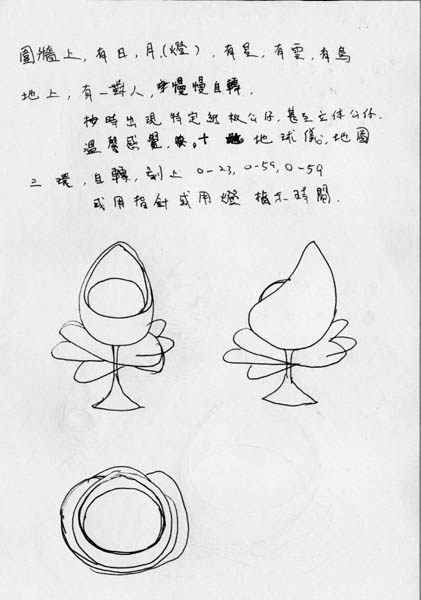 圍牆上，有日，月，(燈)，有星，有雲，有鳥
地上，有一對人，慢慢自轉．
按時出現 特定紙板公仔，甚至立体公仔．
溫馨感覺， 地球儀，地圖
三環，自轉，刻上 0-23, 0-59, 0-59
或用指針或用燈指示時間．